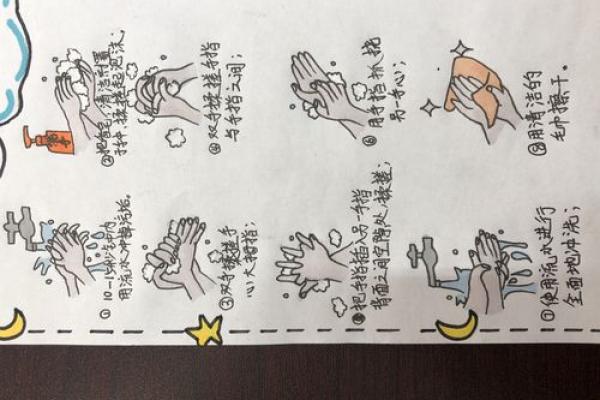 ① 10—15秒钟内
用流水冲掉污垢。
清洁剂置
揉搓起泡沫;
③双手揉搓手
心大拇指;
④双手揉搓手指
与手指之间;
把手指插入另一手指
背面之间空隙处,揉搓;
⑥用手指抓挠
另一手心;
⑦使用流水进行
全面地冲洗;
⑧用清洁的
毛巾擦干。